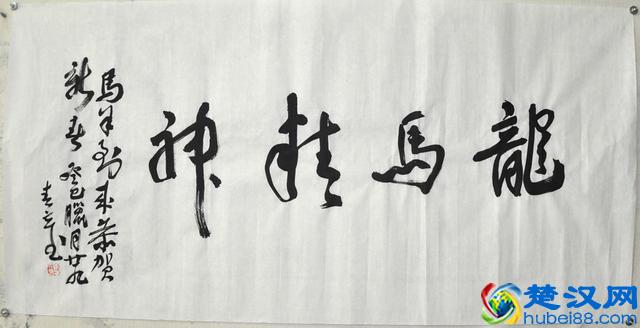 龍馬精神
馬年到来恭贺
新春 癸巳臘月廿九
楚汉网
hubei88.com